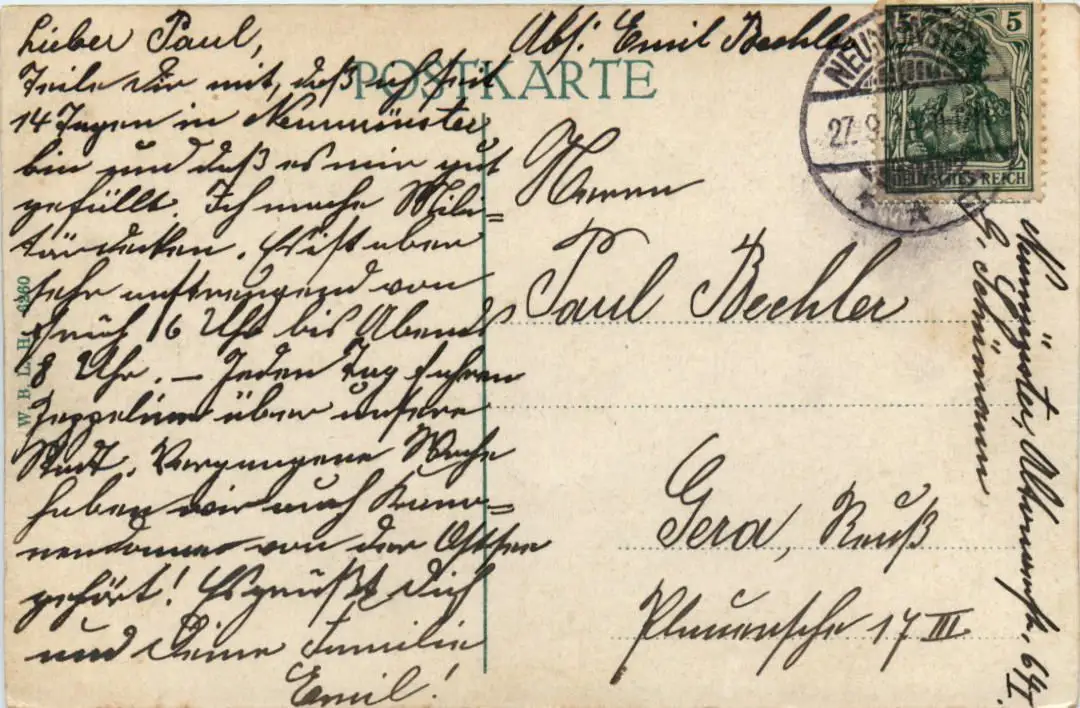 Lieber Paul,
Teile Dir mit, daß ich seit
14 Tagen in Neumünster
bin und daß es mir gut
gefällt. Ich mache Mili=
tärdecken. Es ist aber
sehr anstrengend von
früh 6 Uhr bis Abends
8 Uhr. — Jeden Tag fahren
Zeppeline über unsere
Stadt. Vergangene Woche
haben wir auch Kano=
nendonner von der Ostsee
gehört! Es grüßt Dich
und Deine Familie
Emil!
Abs: Emil Bechler
POSTKARTE
NEUMÜNSTER
27. 9.
5 5
DEUTSCHES REICH
Herrn
Paul Bechler
Gera, Reuß
Plauensche 17 III
Neumünster, 64 I.
Schümann
W. B. L. H. 6260